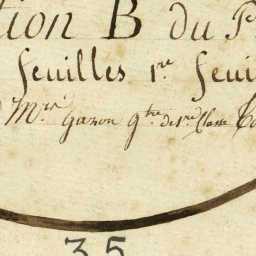 tion B du P
feuilles 1re feui
Mrs Gazon gtre de 1re Classe
35